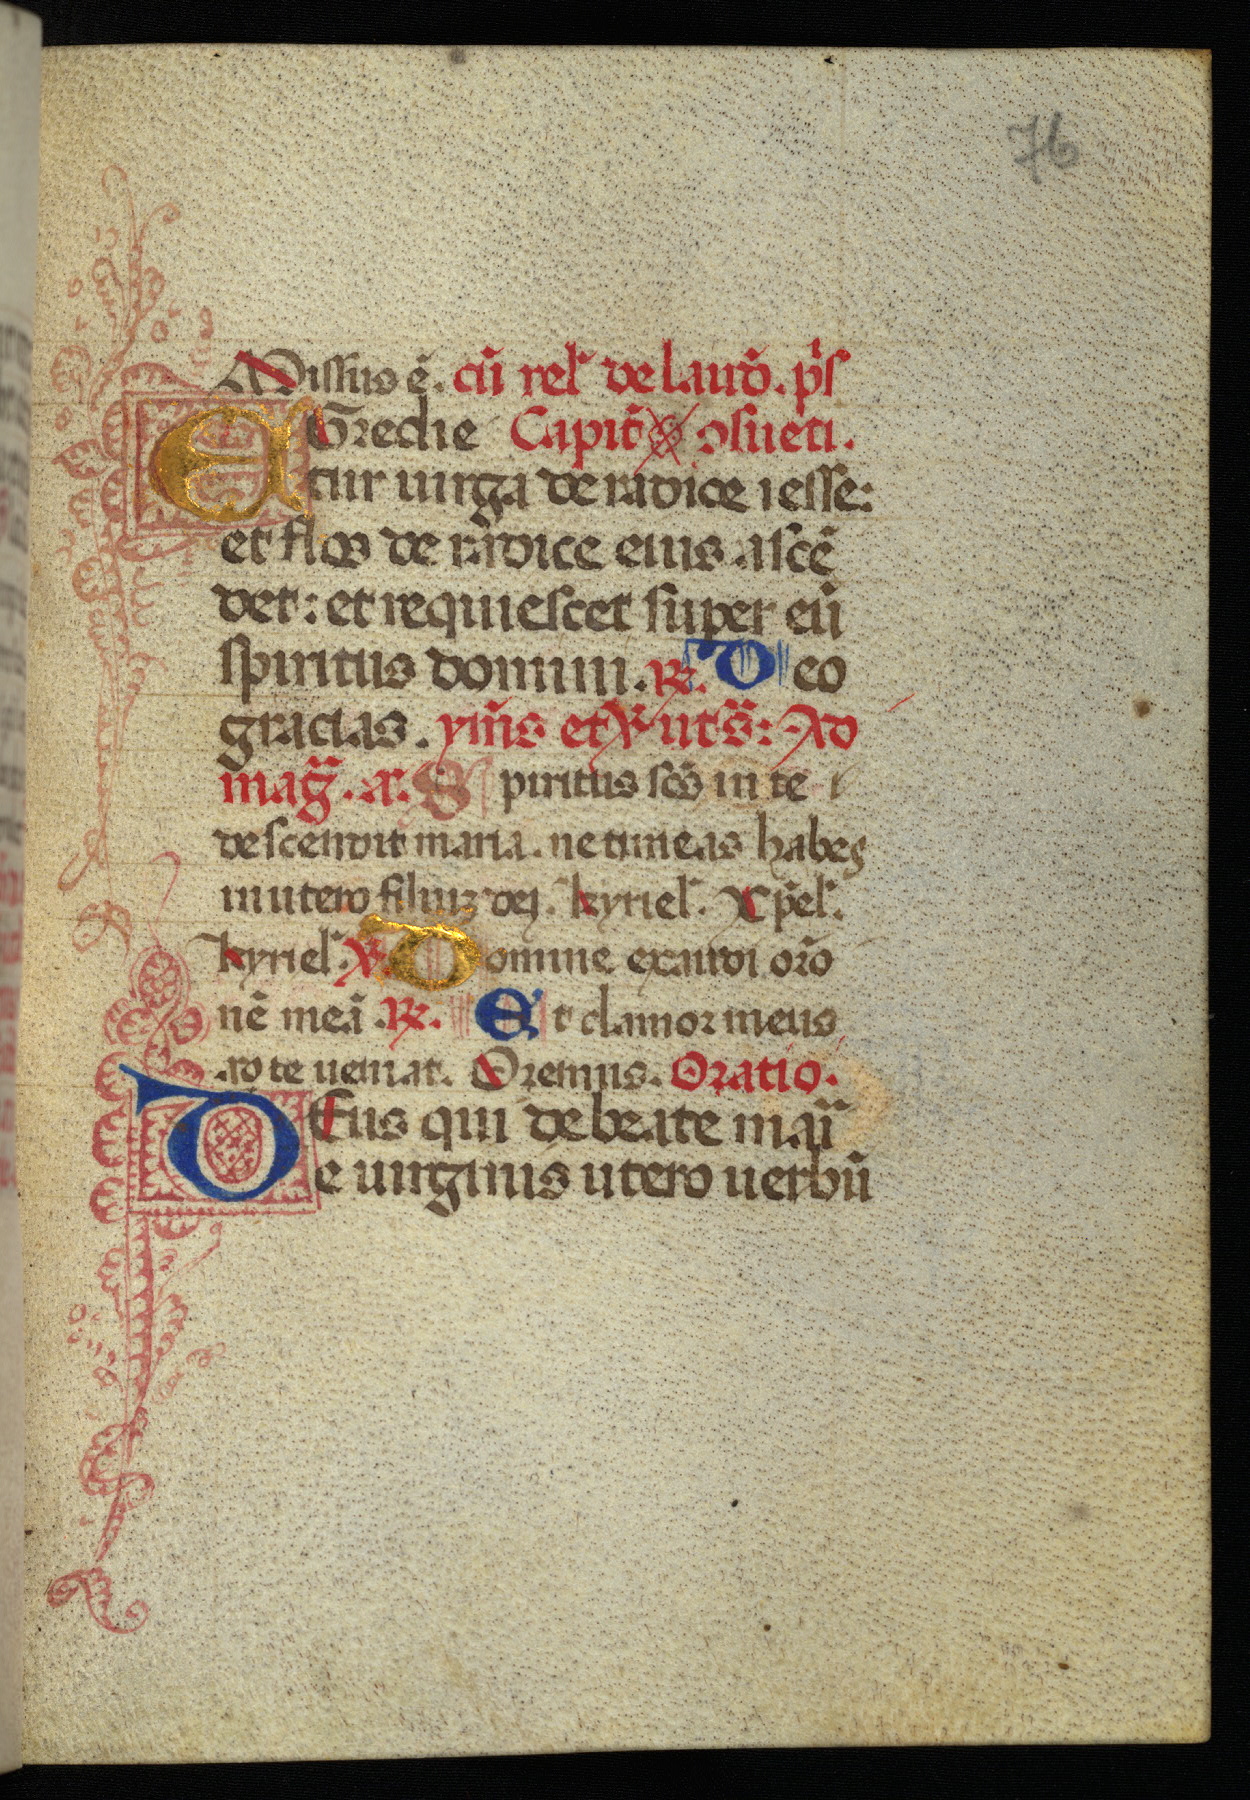 76
Missus ē. cū rel' de laud̄. p̄s
EGredie Capit̄ osueti.
tur uirga de radice iesse:
et flos de rādice eius ascē
det: et requiescet super eū
spiritus domini. R. Deo
gracias. ym̄s et V. ut s̄: Ad
maḡ. a. Spiritus sc̄s in te
descendit maria. ne timeas habes
in utero filiuz dei. kyriel'. Xp̄el'.
kyriel'. V. Domine exaudi or̄o
nē meā. R. Et clamor meus
ad te ueniat. Oremus. Oratio.
DEus qui de beate mari
e uirginis utero uerbū